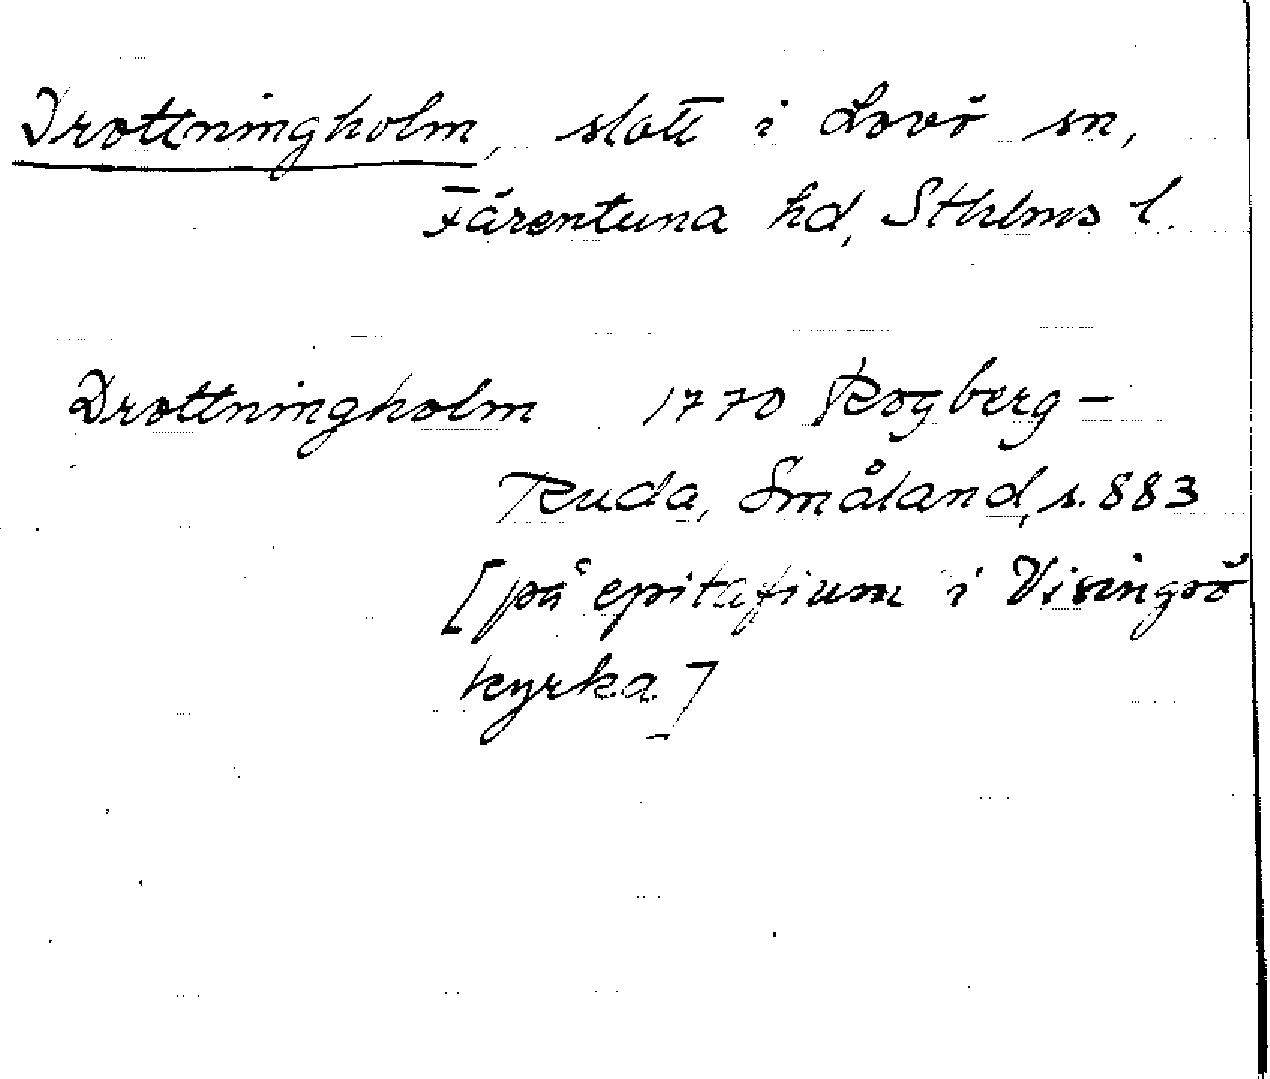 Drottningholm, slott i Lovö sn,
Färentuna hd, Sthlms l.
Drottningholm 1770 Rogberg-
Ruda, Småland, s. 883
[på epitafium i Visingsö
kyrka]